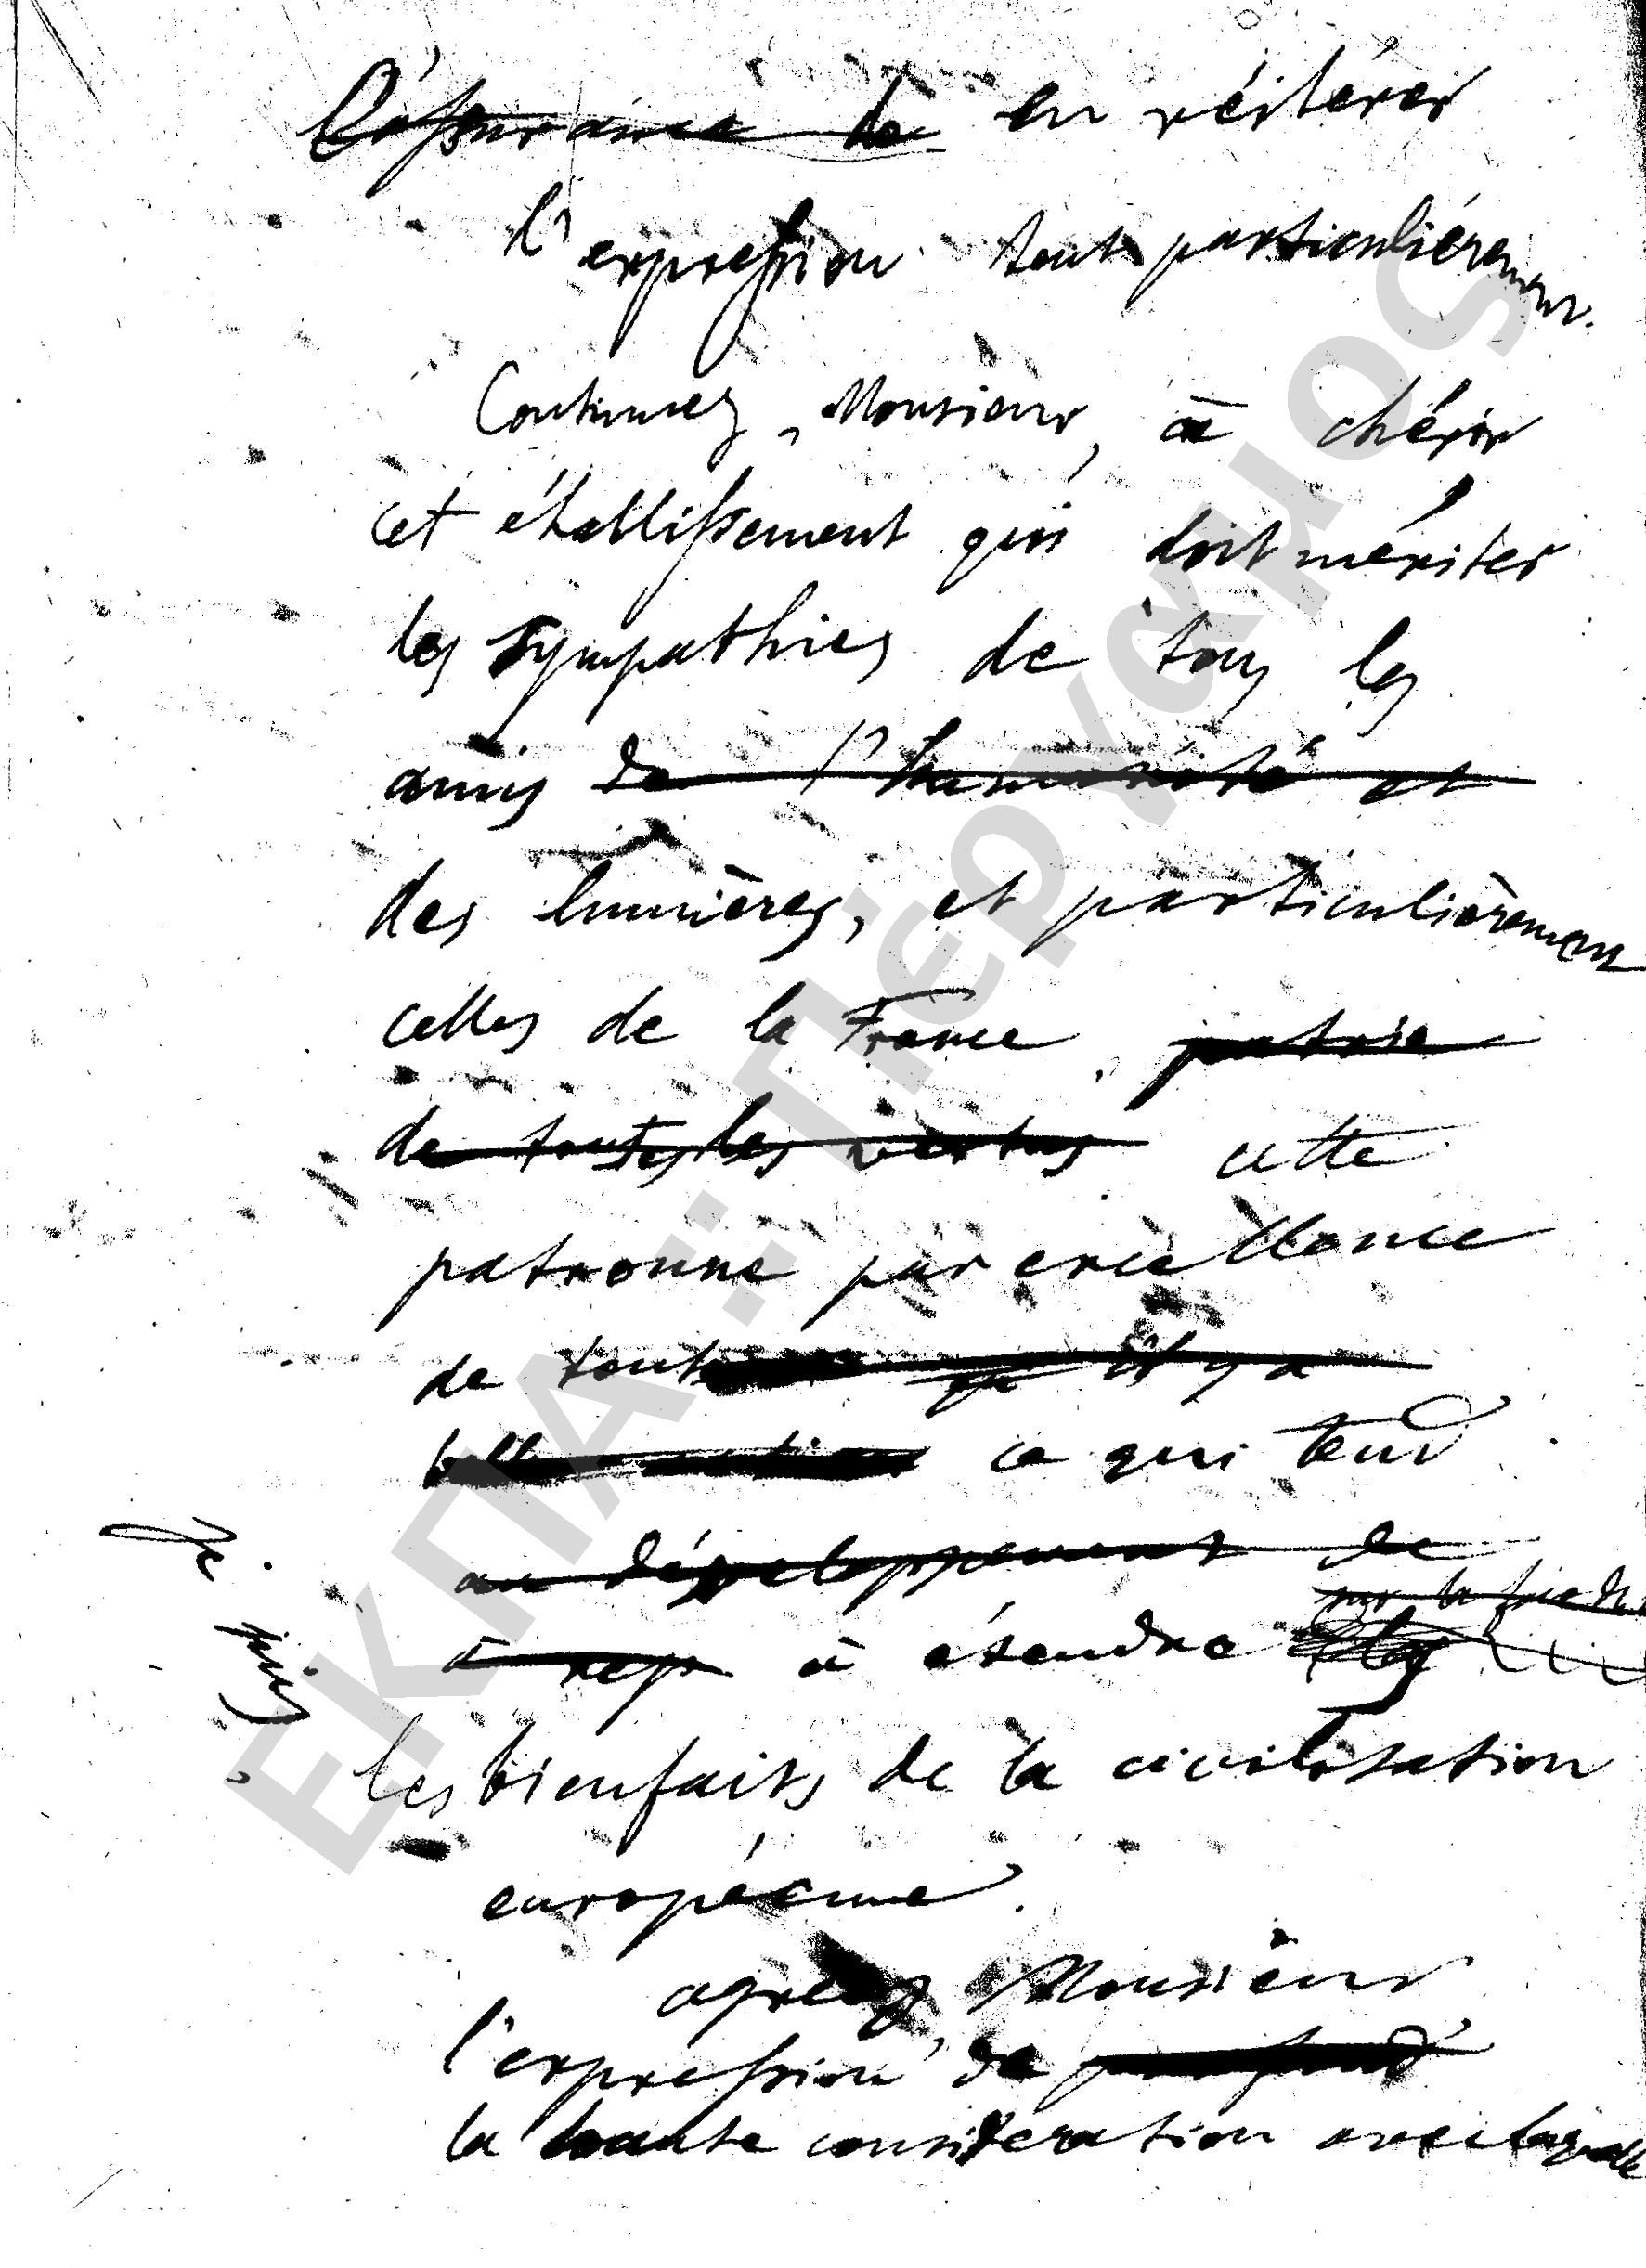 L'assurance de en réitérer
l'expression tout particulièrement.
Continuez, Monsieur, à chérir
cet établissement qui doit mériter
les sympathies de tous les
amis de l'humanité et
des lumières, et particulièrement
celles de la France, patrie
de toutes les vertus cette
patronne par excellence
de tout il y a
belle ce qui tend
au développement de
sur la
à rep à étendre
les bienfaits de la civilisation
européenne.
agréez, Monsieur
l'expression de profond
la haute considération avec laquelle
Je suis
ΕΚΠΑ.: Πέργαμος